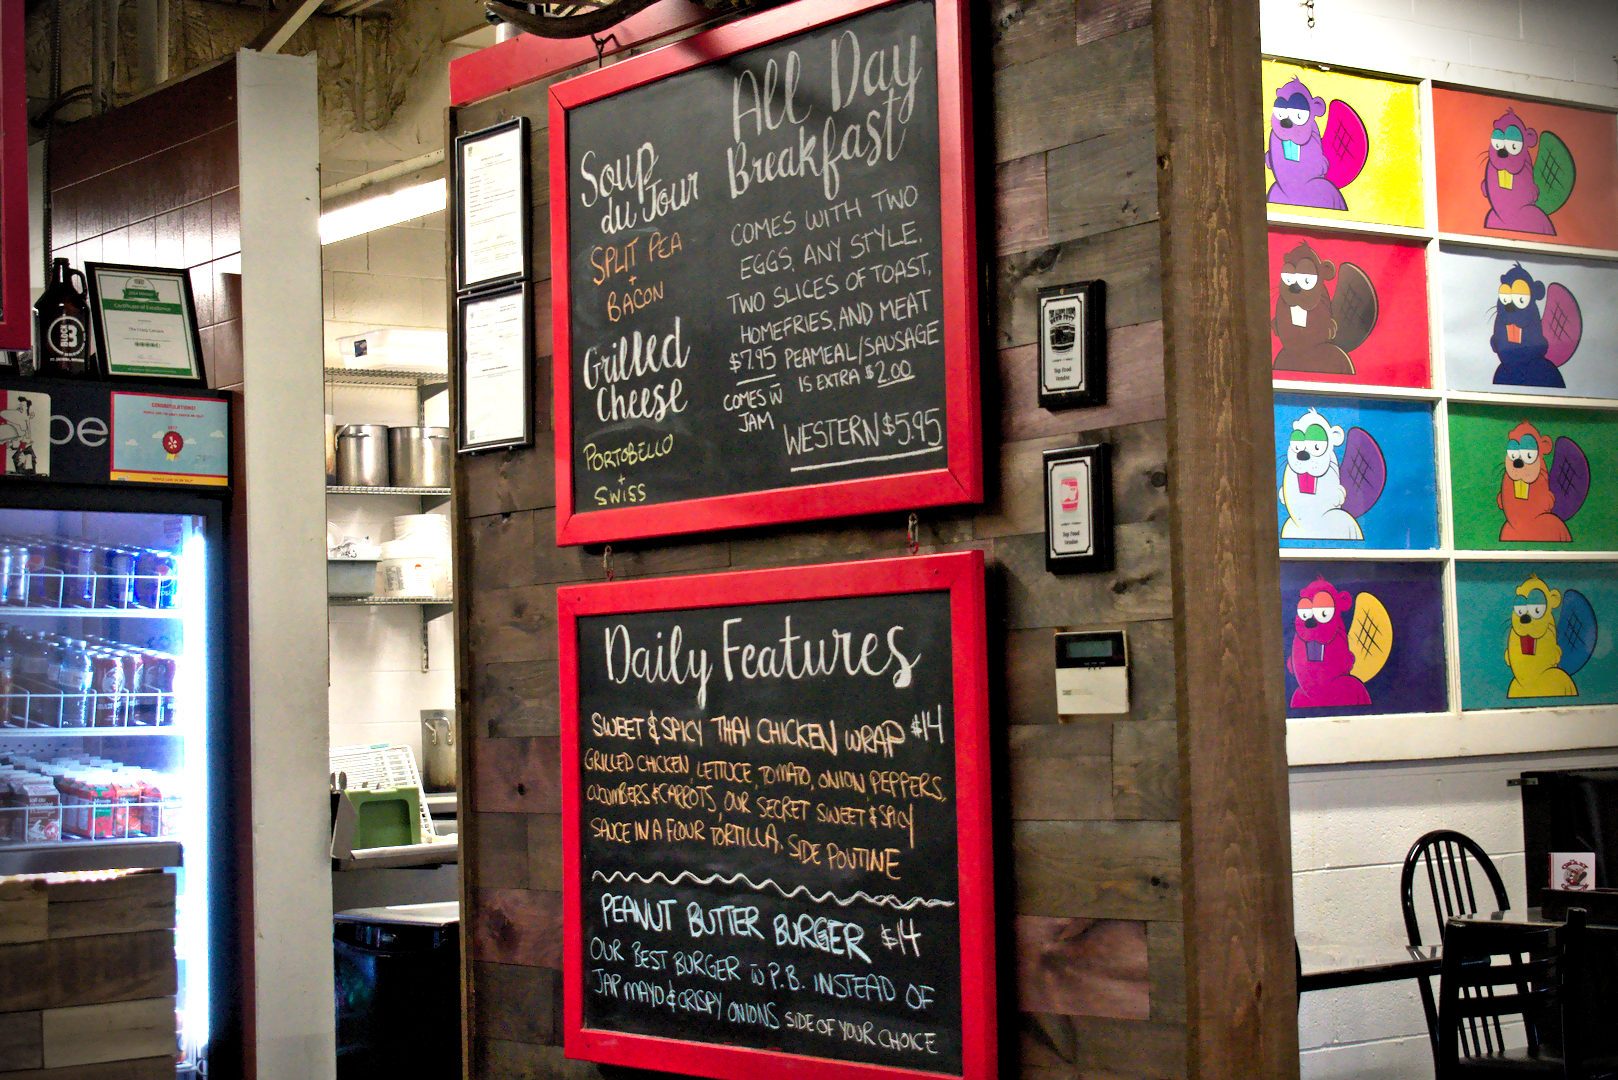 Soup
du Jour
SPLIT PEA
+
BACON
Grilled
Cheese
PORTOBELLO
+
SWISS
All Day
Breakfast
COMES WITH TWO
EGGS, ANY STYLE,
TWO SLICES OF TOAST,
HOMEFRIES, AND MEAT
$7.95 PEAMEAL/SAUSAGE
IS EXTRA $2.00
COMES W
JAM
WESTERN $5.95
Daily Features
SWEET & SPICY THAI CHICKEN WRAP $14
GRILLED CHICKEN, LETTUCE, TOMATO, ONION, PEPPERS,
CUCUMBERS & CARROTS, OUR SECRET SWEET & SPICY
SAUCE IN A FLOUR TORTILLA, SIDE POUTINE
PEANUT BUTTER BURGER $14
OUR BEST BURGER W P.B. INSTEAD OF
JAP MAYO & CRISPY ONIONS SIDE OF YOUR CHOICE
BLOCK
3
Certificate of Excellence
The Crazy Canuck
CONGRATULATIONS!
be
Top Food
Vendor
Top Food
Vendor